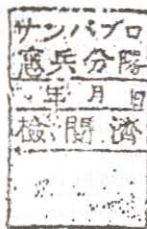 サンパブロ
憲兵分隊
年 月 日
檢閲済